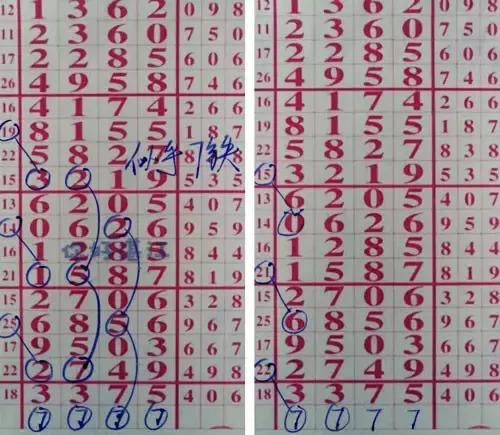 12 1 3 6 2 0 9 8
11 2 3 6 0 7 5 0
22 2 2 8 5 6 0 6
26 4 9 5 8 7 4 6
16 4 1 7 4 2 6 6
19 8 1 5 5 1 8 7
22 5 8 2 8 8
似乎7
15 3 2 1 9 5 3 5
13 6 2 0 5 4 0 7
14 0 6 2 6 9 5 9
16 1 2 8 5 8 4 4
21 1 5 8 7 8 1 9
15 2 7 0 6 3 2 8
25 6 8 5 6 9 6 7
17 9 5 0 3 6 6 7
22 2 7 4 9 9 6 7
18 3 3 7 5 4 0 6
7 7 7 7
12 1 3 6 2 0 9 8
11 2 3 6 0 7 5 0
22 2 2 8 5 6 0 6
26 4 9 5 8 7 4 6
16 4 1 7 4 2 6 6
19 8 1 5 5 1 8 7
22 5 8 2 7 8 3 8
15 3 2 1 9 5 3 5
13 6 2 0 5 4 0 7
14 0 6 2 6 9 5 9
16 1 2 8 5 8 4 4
21 1 5 8 7 8 1 9
15 2 7 0 6 3 2 8
25 6 8 5 6 9 6 7
17 9 5 0 3 6 6 7
22 2 7 4 9 9 6 7
18 3 3 7 5 4 0 6
7 7 7 7